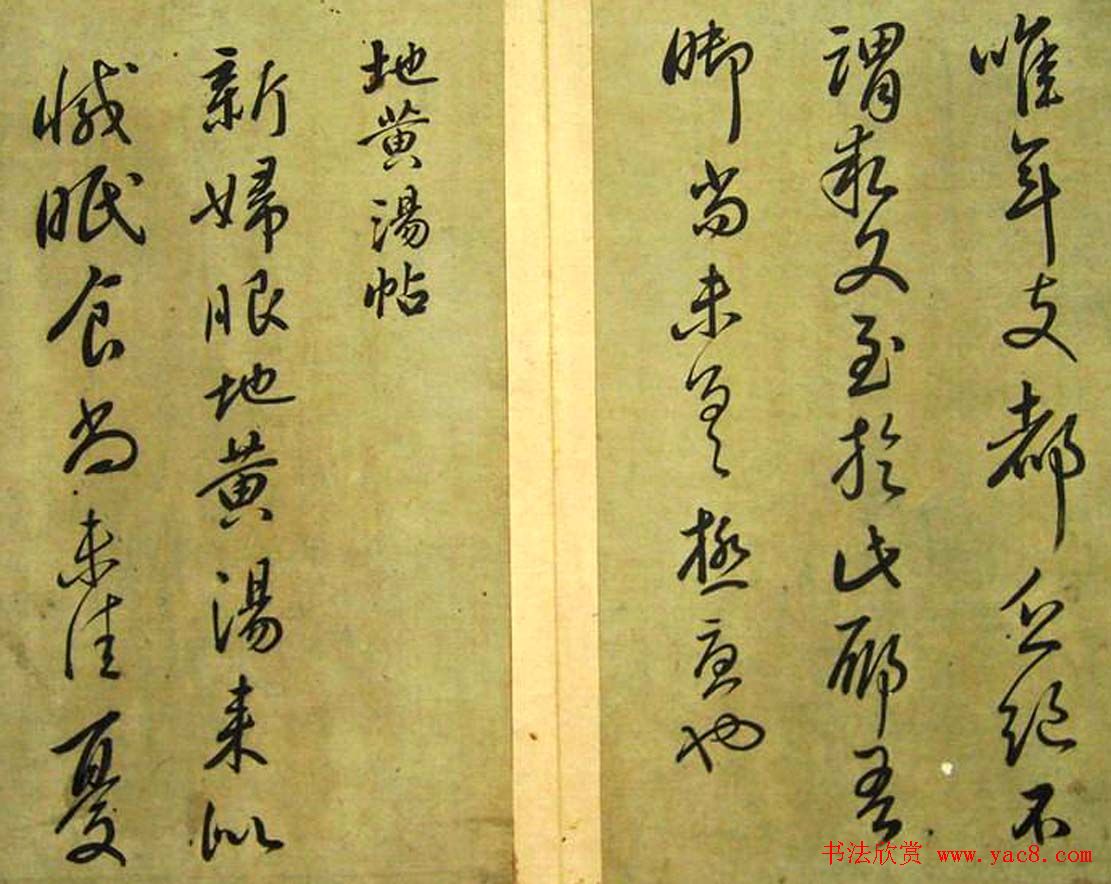 唯年支都絕不
謂又至於此耶吾
腳尚未差極也
地黄湯帖
新婦服地黄湯来似
減眠食尚未佳憂
书法欣赏 www.yac8.com